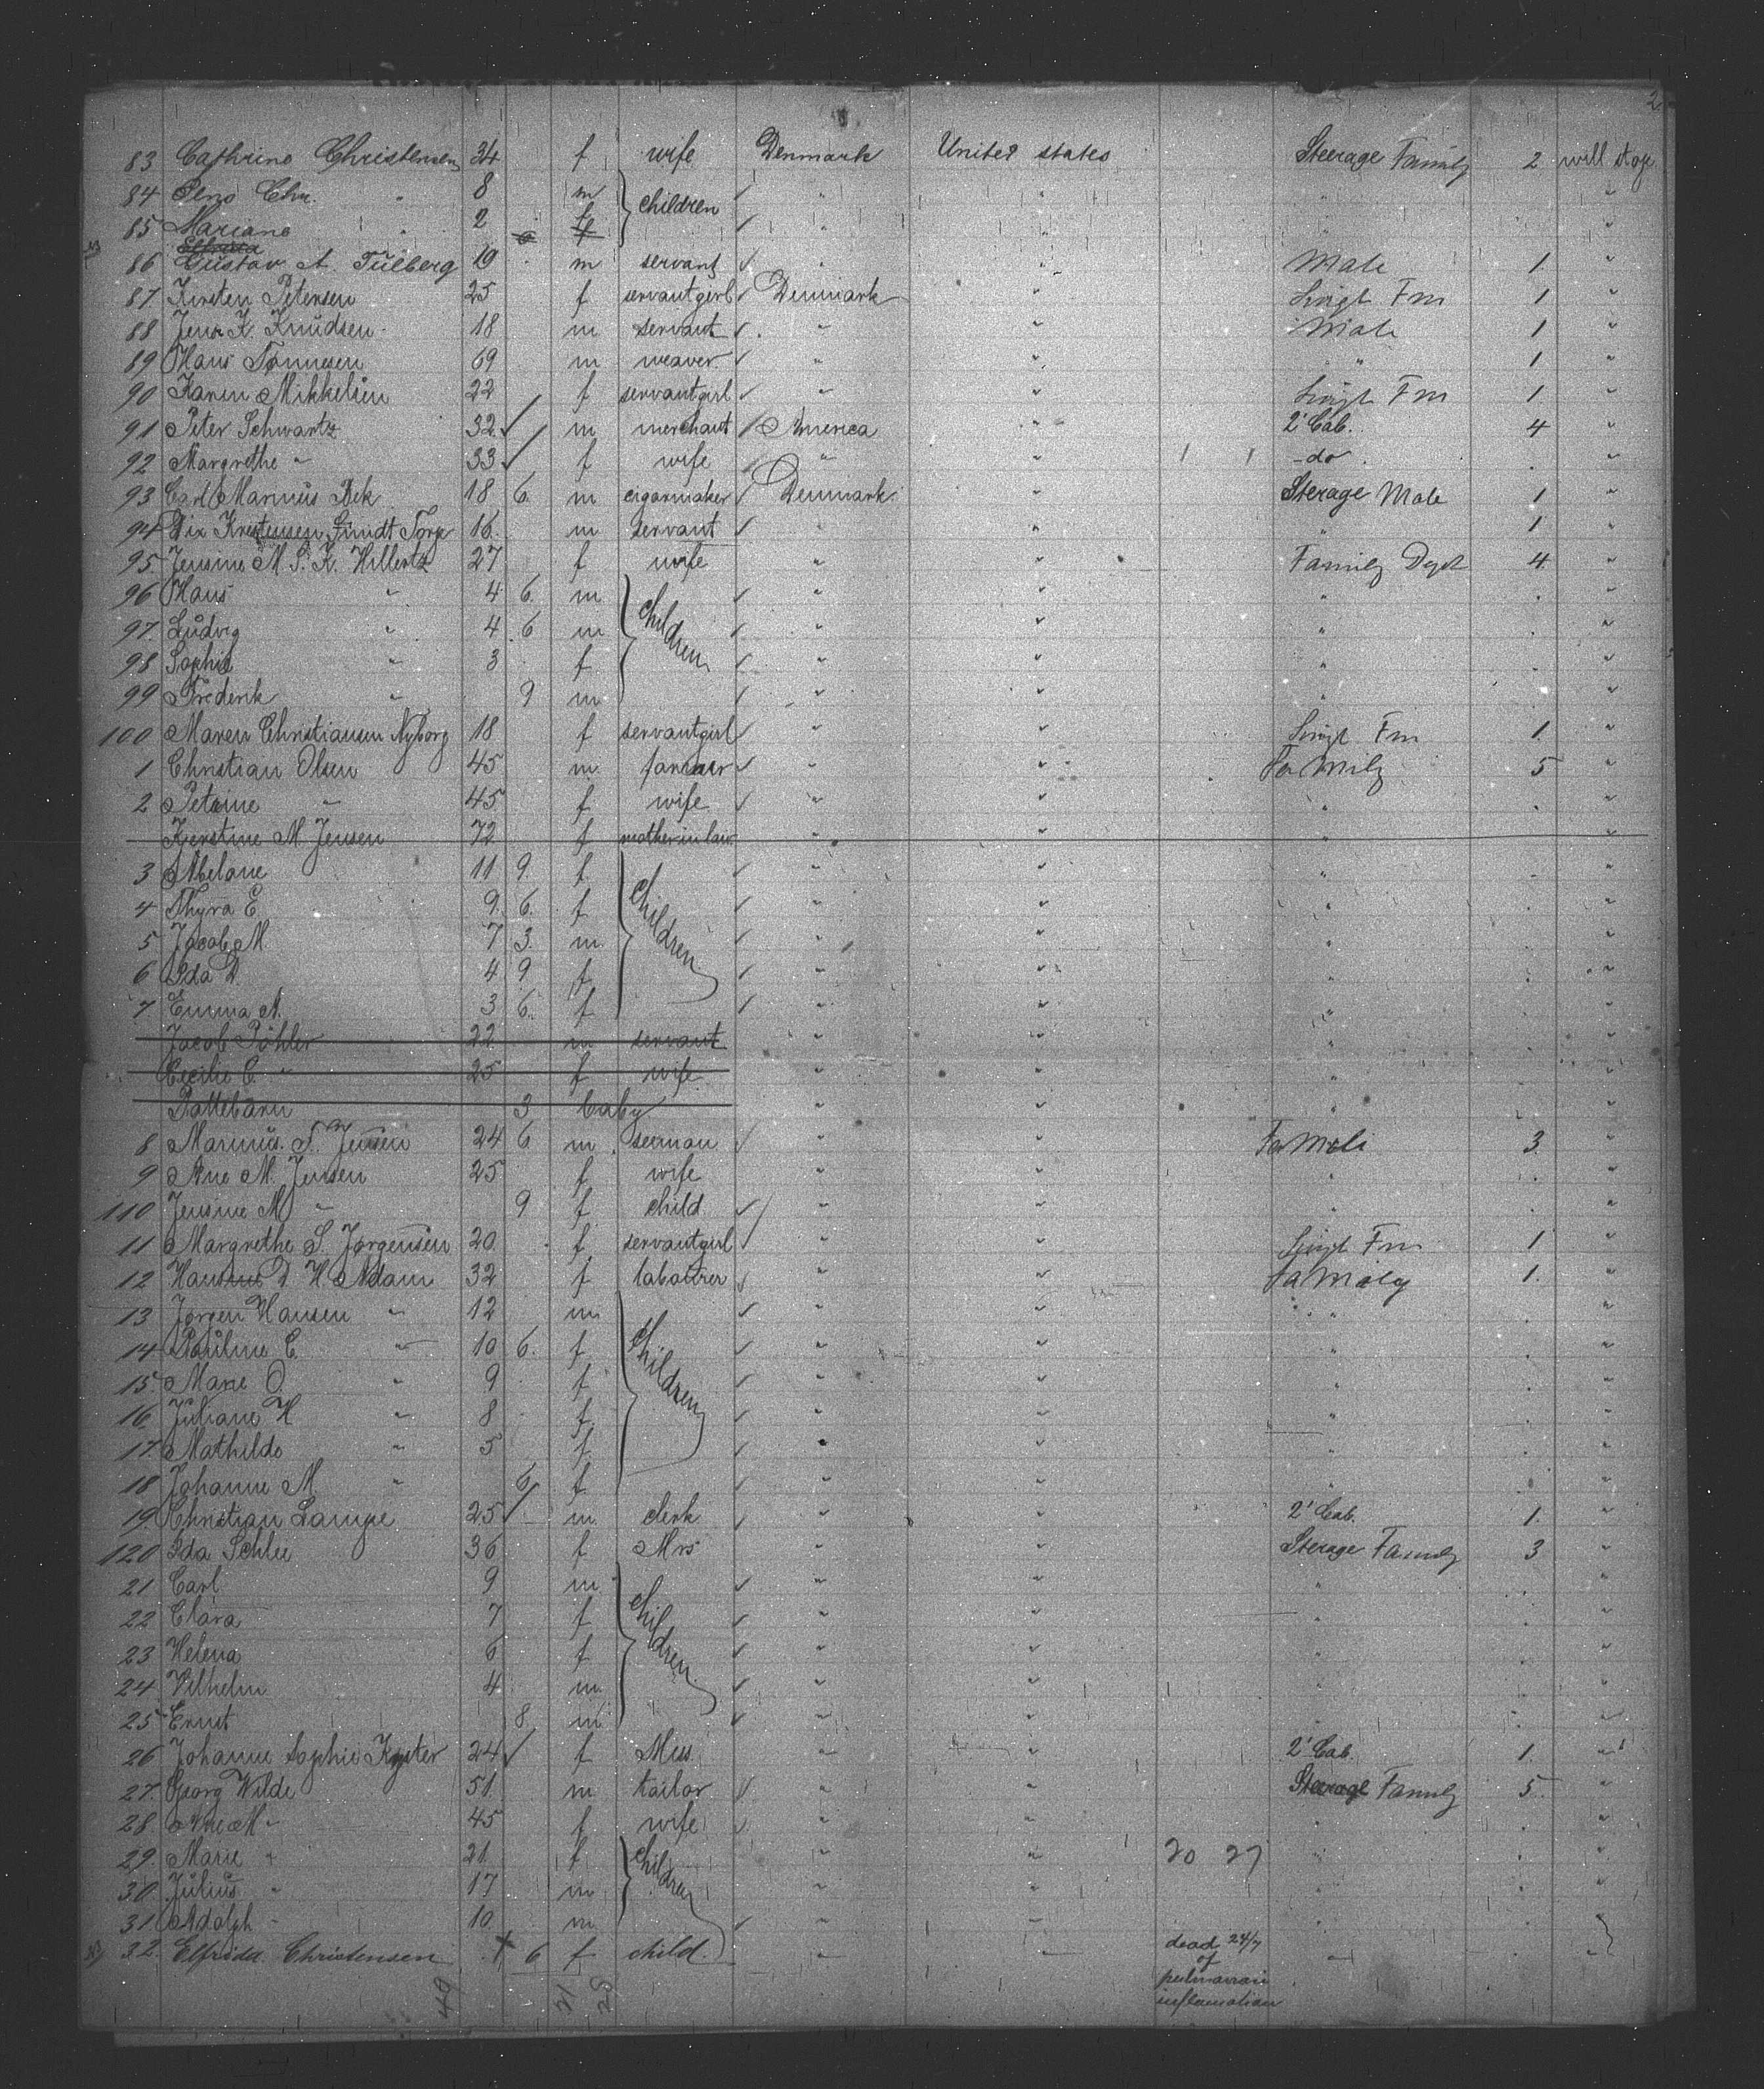 2
83 Cathrine Christensen 34 f wife Denmark United states Steerage Family 2 will stop
84 Chr. " 8 m children " " " "
85 Mariane " 2 f " " " "
86 Gustav A. Tülberg 19 m servant " " Male 1 "
87 Kirsten Petersen 25 f servantgirl Denmark " Singl Fm 1 "
88 Jens K. Knudsen 18 m servant " " Male 1 "
89 Hans Tønnesen 69 m weaver " " " 1 "
90 Karen Mikkelsen 22 f servantgirl " " Singl Fm 1 "
91 Peter Schwartz 32 m merchant America " 2' Cab. 4 "
92 Margrethe " 33 f wife " " -do- "
93 Carl Marinus Bek 18 6 m cigarmaker Denmark " Sterage Male 1 "
94 Gundt 16 m servant " " " 1 "
95 Jensine M. S. K. Hillertz 27 f wife " " Family Dept 4 "
96 Hans " 4 6 m children " " " "
97 Ludvig " 4 6 m " " " "
98 Sophie " 3 f " " " "
99 Frederik " 9 m " " " "
100 Maren Christiansen Nyborg 18 f servantgirl " " Singl Fm 1 "
1 Christian Olsen 45 m farmer " " Family 5 "
2 Petrine " 45 f wife " " " "
Kjerstine M. Jensen 72 f mother in law " " " "
3 Abelone 11 9 f children " " " "
4 Thyra E. 9 6 f " " " "
5 Jacob M. 7 3 m " " " "
6 Ida D. 4 9 f " " " "
7 Emma A. 3 6 f " " " "
Jacob Pöhler 22 m servant " " " "
Cecilie C. " 25 f wife " " " "
Pattebarn 3 baby " " " "
8 Marinus T. Jensen 24 6 m seeman " " 3 "
9 Ane M. Jensen 25 f wife " " " "
110 Jensine M. " 9 f child " " " "
11 Margrethe S. Jørgensen 20 f servantgirl " " Singl Fm 1 "
12 D. H. Adam 32 f labourer " " Family 1 "
13 Jørgen Hansen " 12 m children " " " "
14 Pauline C. " 10 6 f " " " "
15 Marie O. " 9 f " " " "
16 Juliane H. " 8 f " " " "
17 Mathilde " 5 f " " " "
18 Johanne M. " 6 f " " " "
19 Christian Lampe 25 m clerk " " 2' Cab. 1 "
120 Ida Schlee 36 f Mrs " " Sterage Family 3 "
21 Carl 9 m children " " " "
22 Clara 7 f " " " "
23 Helena 6 f " " " "
24 Vilhelm 4 m " " " "
25 Ernst 8 m " " " "
26 Johanne Sophie Kyster 24 f Miss " " 2' Cab. 1 "
27 Georg Wilde 51 m tailor " " Steerage Family 5 "
28 Ane M. " 45 f wife " " " "
29 Marie " 21 f children " " 20 27 " "
30 Julius " 17 m " " " "
31 Adolph " 10 m " " " "
32 Elfrida Christensen 6 f child " " dead 24/7 " "
of
pulmonair
inflamation
49 21 28